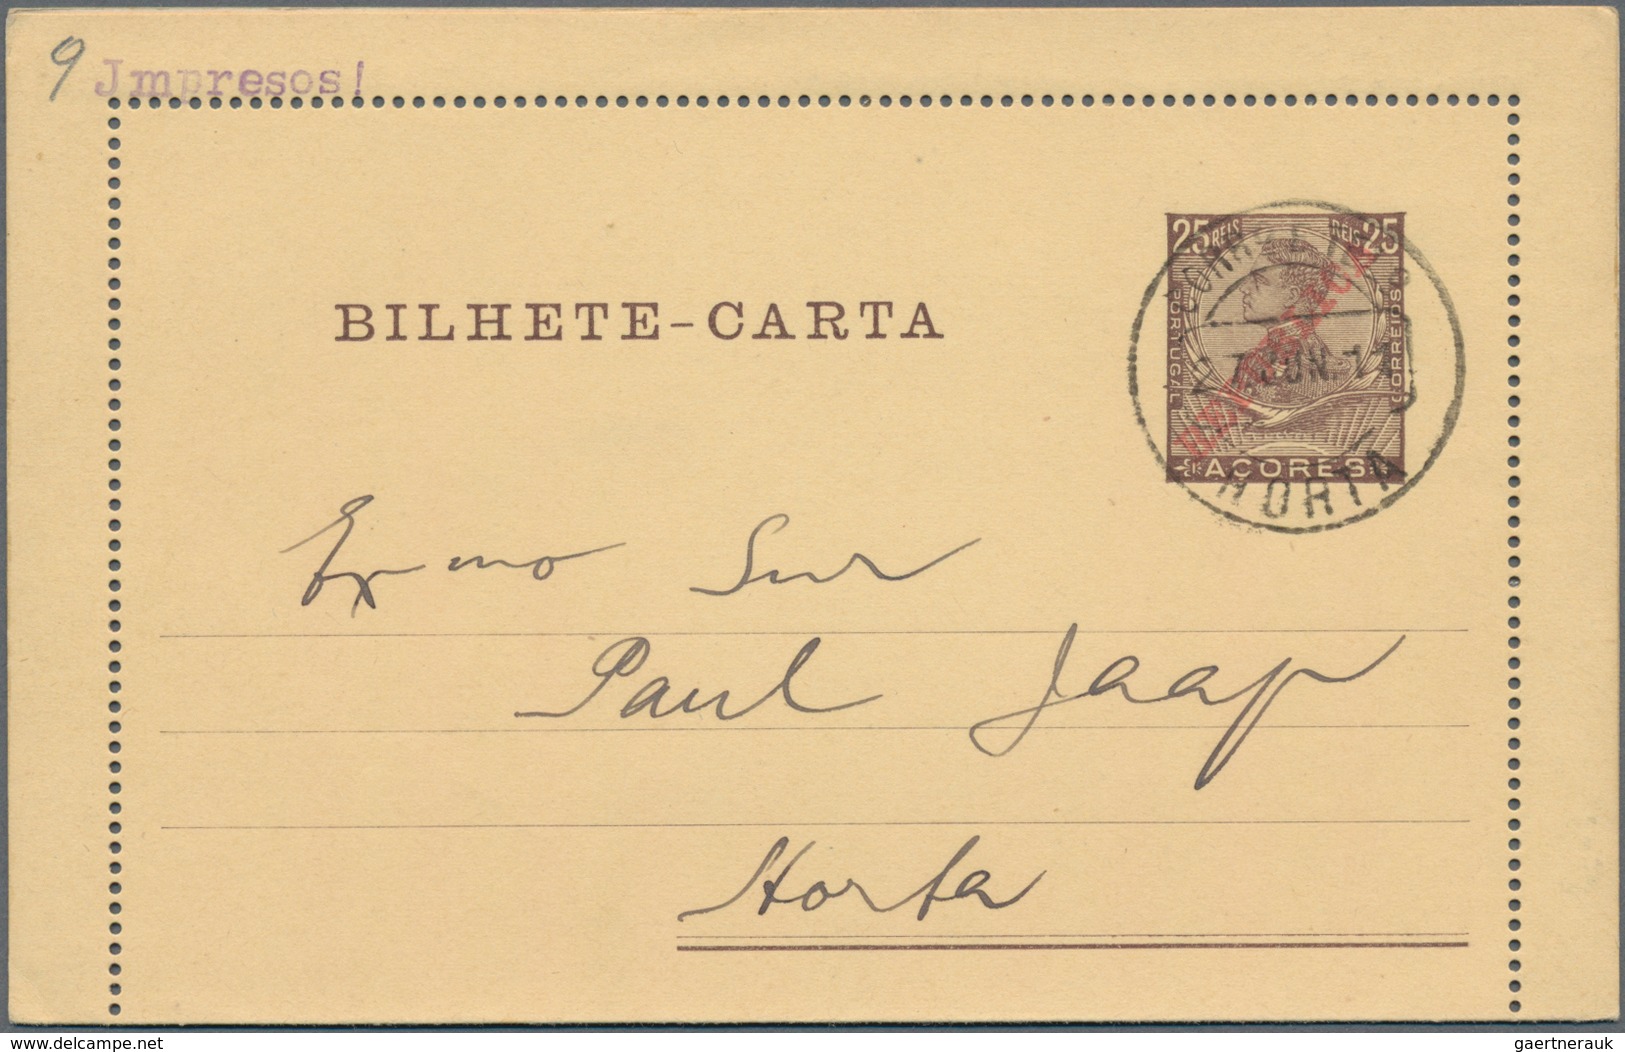 9 Jmpresos!
25 REIS REIS 25
BILHETE-CARTA
PORTUGAL
CORREIOS
REPUBLICA
27.JUN.11
AÇORES
HORTA
Exmo Snr
Paul Jaap
Horta
delcampe.net
gaertnerauk